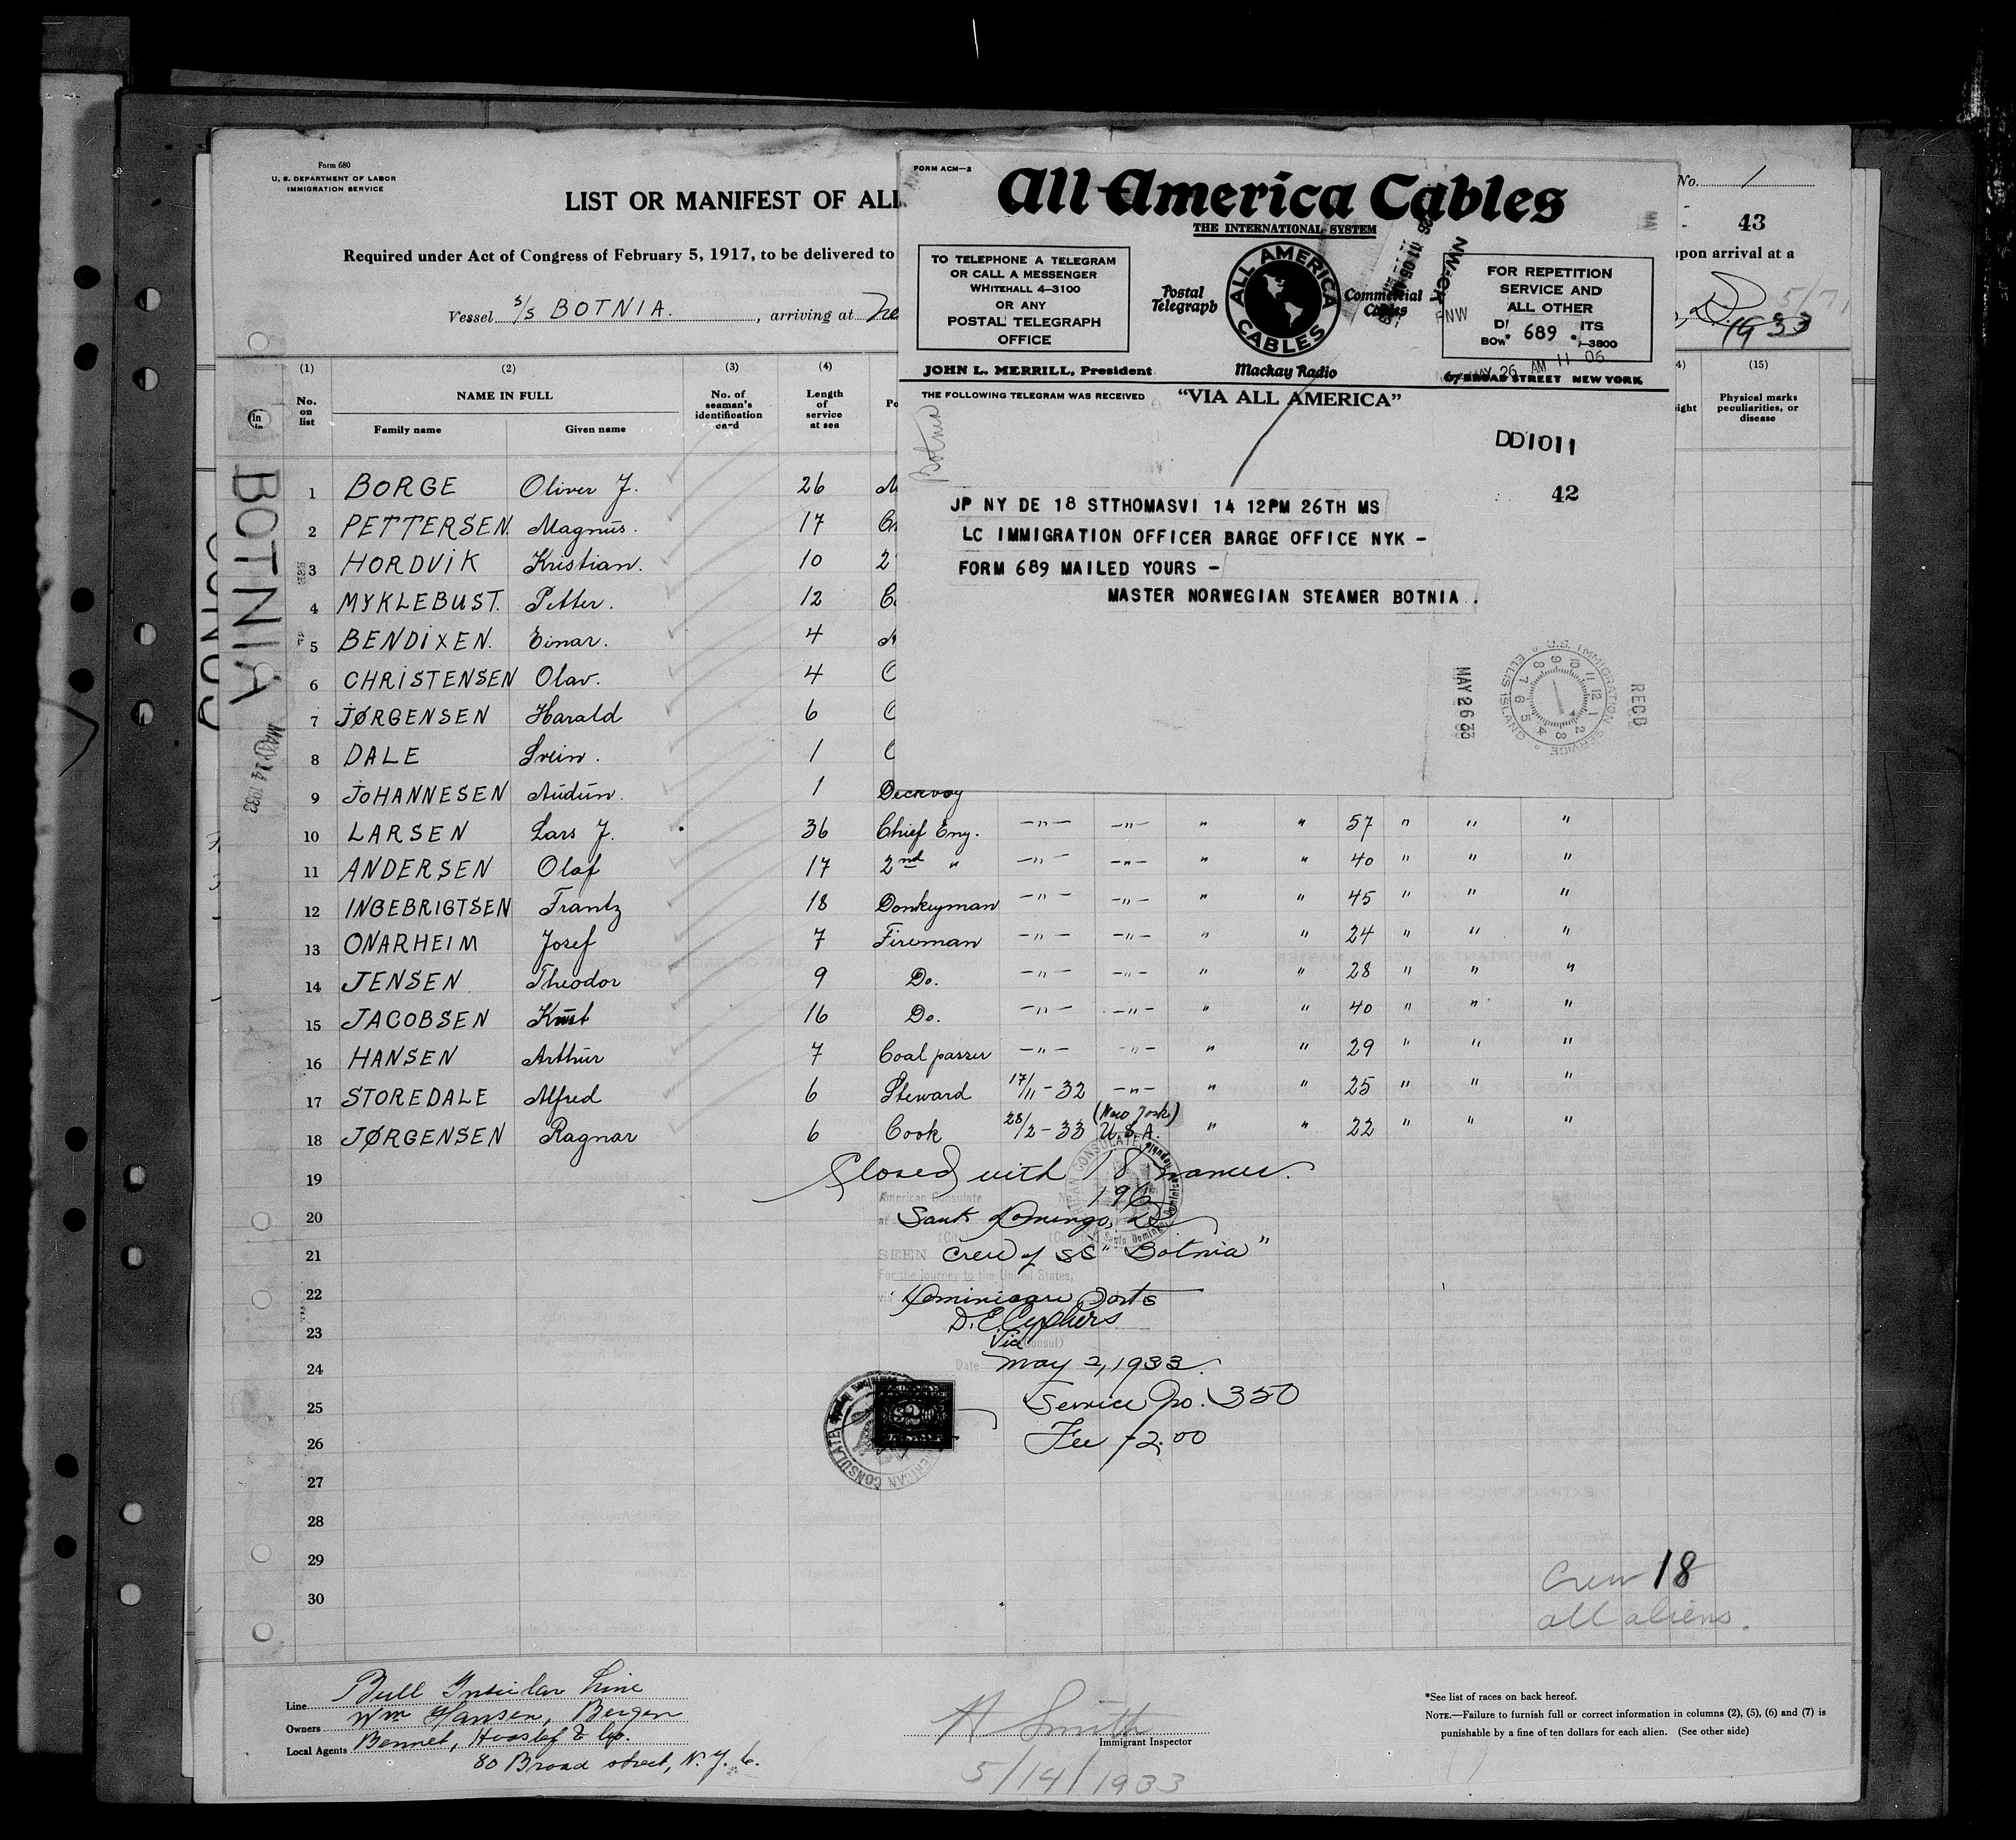 Form 680
U. S. DEPARTMENT OF LABOR
IMMIGRATION SERVICE
LIST OR MANIFEST OF ALI
Required under Act of Congress of February 5, 1917, to be delivered to
Vessel S/S BOTNIA. , arriving at Ne
No. 1
43
upon arrival at a
1933
FORM ACM—2
All America Cables
THE INTERNATIONAL SYSTEM
TO TELEPHONE A TELEGRAM
OR CALL A MESSENGER
WHITEHALL 4-3100
OR ANY
POSTAL TELEGRAPH
OFFICE
Postal
Telegraph
ALL AMERICA
CABLES
Commercial
Cables
Mackay Radio
FOR REPETITION
SERVICE AND
ALL OTHER
689
-3800
MAY 26 AM 11 06
67 BROAD STREET NEW YORK
JOHN L. MERRILL, President
THE FOLLOWING TELEGRAM WAS RECEIVED "VIA ALL AMERICA"
Botnia
DD1011
42
JP NY DE 18 STTHOMASVI 14 12PM 26TH MS
LC IMMIGRATION OFFICER BARGE OFFICE NYK -
FORM 689 MAILED YOURS -
MASTER NORWEGIAN STEAMER BOTNIA .
RECD
U.S. IMMIGRATION SERVICE
ELLIS ISLAND
MAY 26 33
BOTNIA
MAY 14 1933
(1) (2) (3) (4) (15)
No. on list
NAME IN FULL
Family name Given name
No. of seaman's identification card
Length of service at sea
Physical marks peculiarities, or disease
1 BORGE Oliver J. 26
2 PETTERSEN. Magnus. 17
3 HORDVIK Kristian. 10 2
4 MYKLEBUST. Petter. 12
5 BENDIXEN. Einar. 4
6 CHRISTENSEN Olav. 4
7 JØRGENSEN Harald 6
8 DALE Svein. 1
9 JOHANNESEN Audun. 1 Deckboy
10 LARSEN Lars J. 36 Chief Eng. —"— —"— " " 57 " " "
11 ANDERSEN Olaf 17 2nd " —"— —"— " " 40 " " "
12 INGEBRIGTSEN Frantz 18 Donkeyman —"— —"— " " 45 " " "
13 ONARHEIM Josef 7 Fireman —"— —"— " " 24 " " "
14 JENSEN Theodor 9 Do. —"— —"— " " 28 " " "
15 JACOBSEN Knut 16 Do. —"— —"— " " 40 " " "
16 HANSEN Arthur 7 Coal passer —"— —"— " " 29 " " "
17 STOREDALE Alfred 6 Steward 17/11-32 —"— " " 25 " " "
18 JØRGENSEN Ragnar 6 Cook 28/2-33 (New York) U.S.A. " " 22 " " "
19 Closed with 18 names.
American Consulate No. 196
20 Santo Domingo, D.R.
21 SEEN crew of SS "Botnia"
For the journey to the United States,
22 Dominican Ports
23
Vice (Consul)
24 Date May 2, 1933.
25 Service No. 350
26 Fee - 2.00
AMERICAN CONSULATE
$2.00
27
28
29
30
Crew 18
all aliens.
Line Bull Insular Line
Owners Wm Hansen, Bergen
Local Agents Bennet, Hvoslef & Co.
80 Broad street, N.Y.C.
A Smith
Immigrant Inspector
5/14/1933
*See list of races on back hereof.
NOTE.—Failure to furnish full or correct information in columns (2), (5), (6) and (7) is
punishable by a fine of ten dollars for each alien. (See other side)